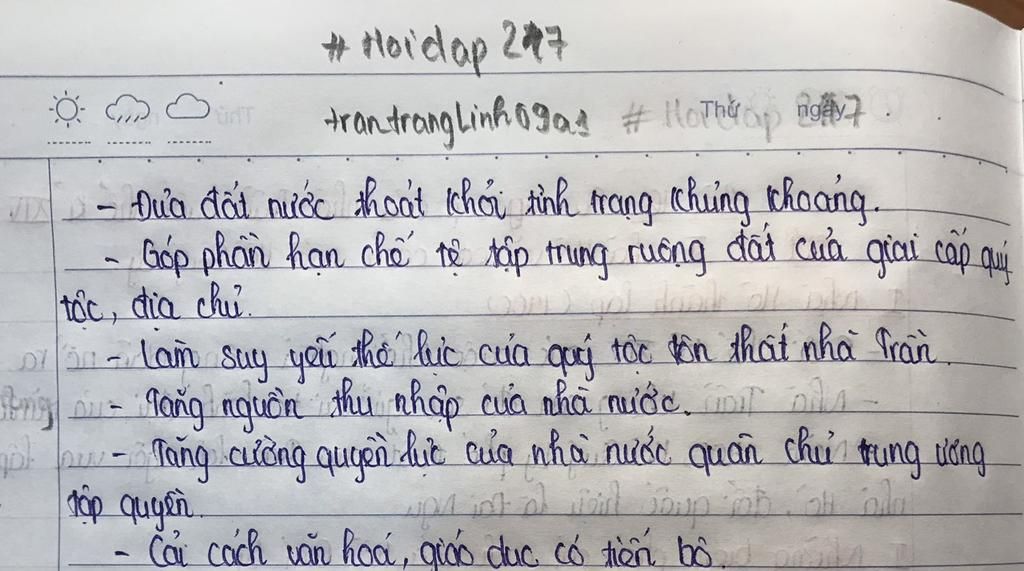 # Hoidap 247
trantranglinh09a1 # Hoidap 247
Thứ ngày
- Đưa đất nước thoát khỏi tình trạng khủng khoảng.
- Góp phần hạn chế tệ tập trung ruộng đất của giai cấp quý
tộc, địa chủ.
- Làm suy yếu thế lực của quý tộc tôn thất nhà Trần.
- Tăng nguồn thu nhập của nhà nước.
- Tăng cường quyền lực của nhà nước quân chủ trung ương
tập quyền.
- Cải cách văn hoá, giáo dục có tiến bộ.